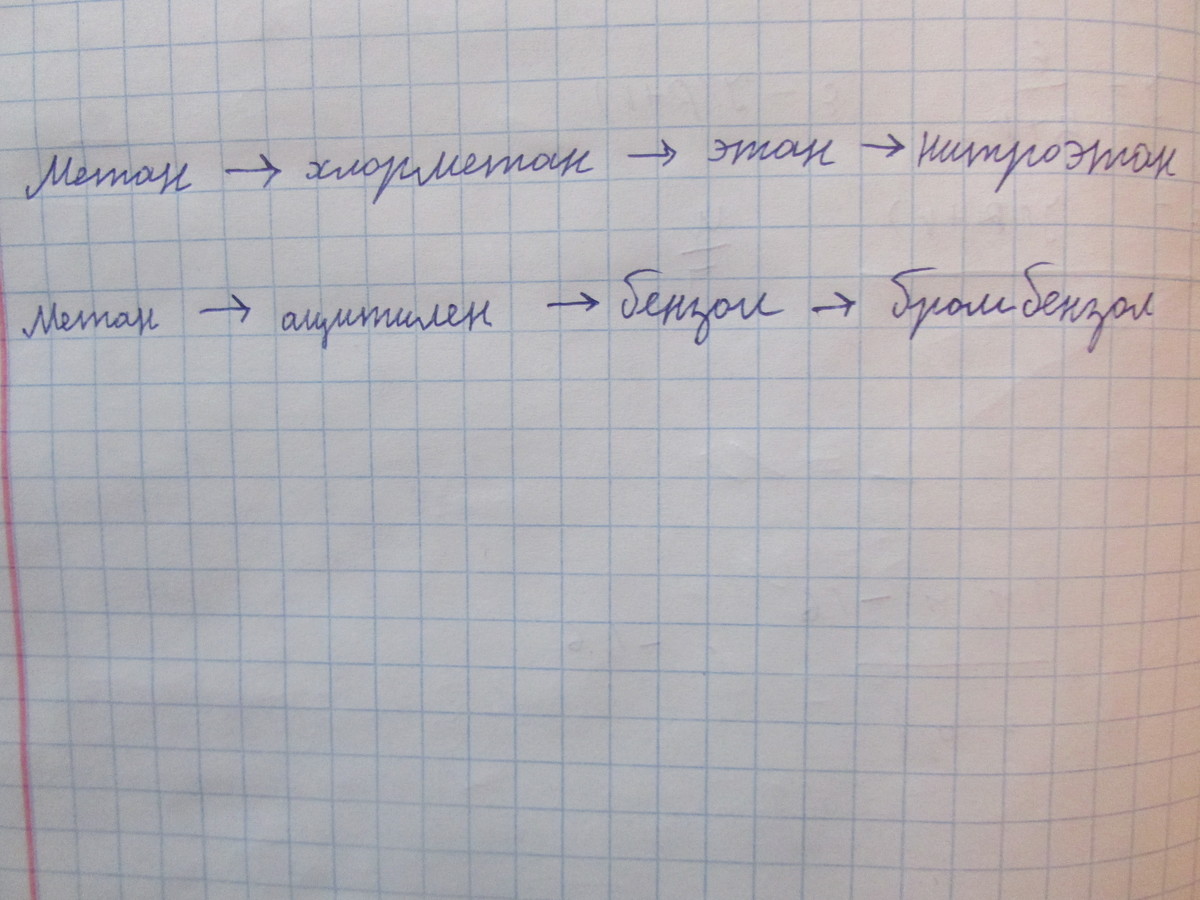 Метан → хлорметан → этан → нитроэтан
Метан → ацитилен → бензол → бромбензол